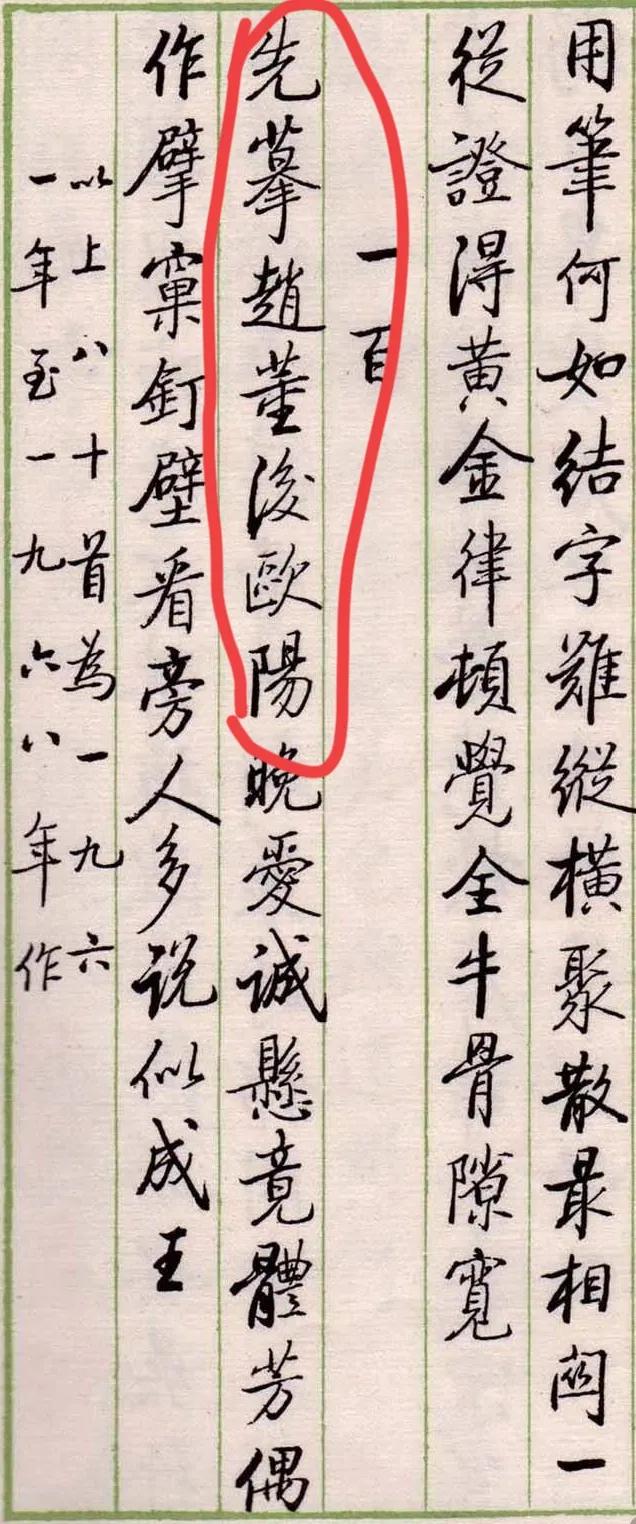 用筆何如結字難縱橫聚散最相關一
從證得黃金律頓覺全牛骨隙寬
一百
先摹趙董後歐陽晚愛誠懸竟體芳偶
作擘窠釘壁看旁人多說似成王
以上八十首為一九六
一年至一九六八年作